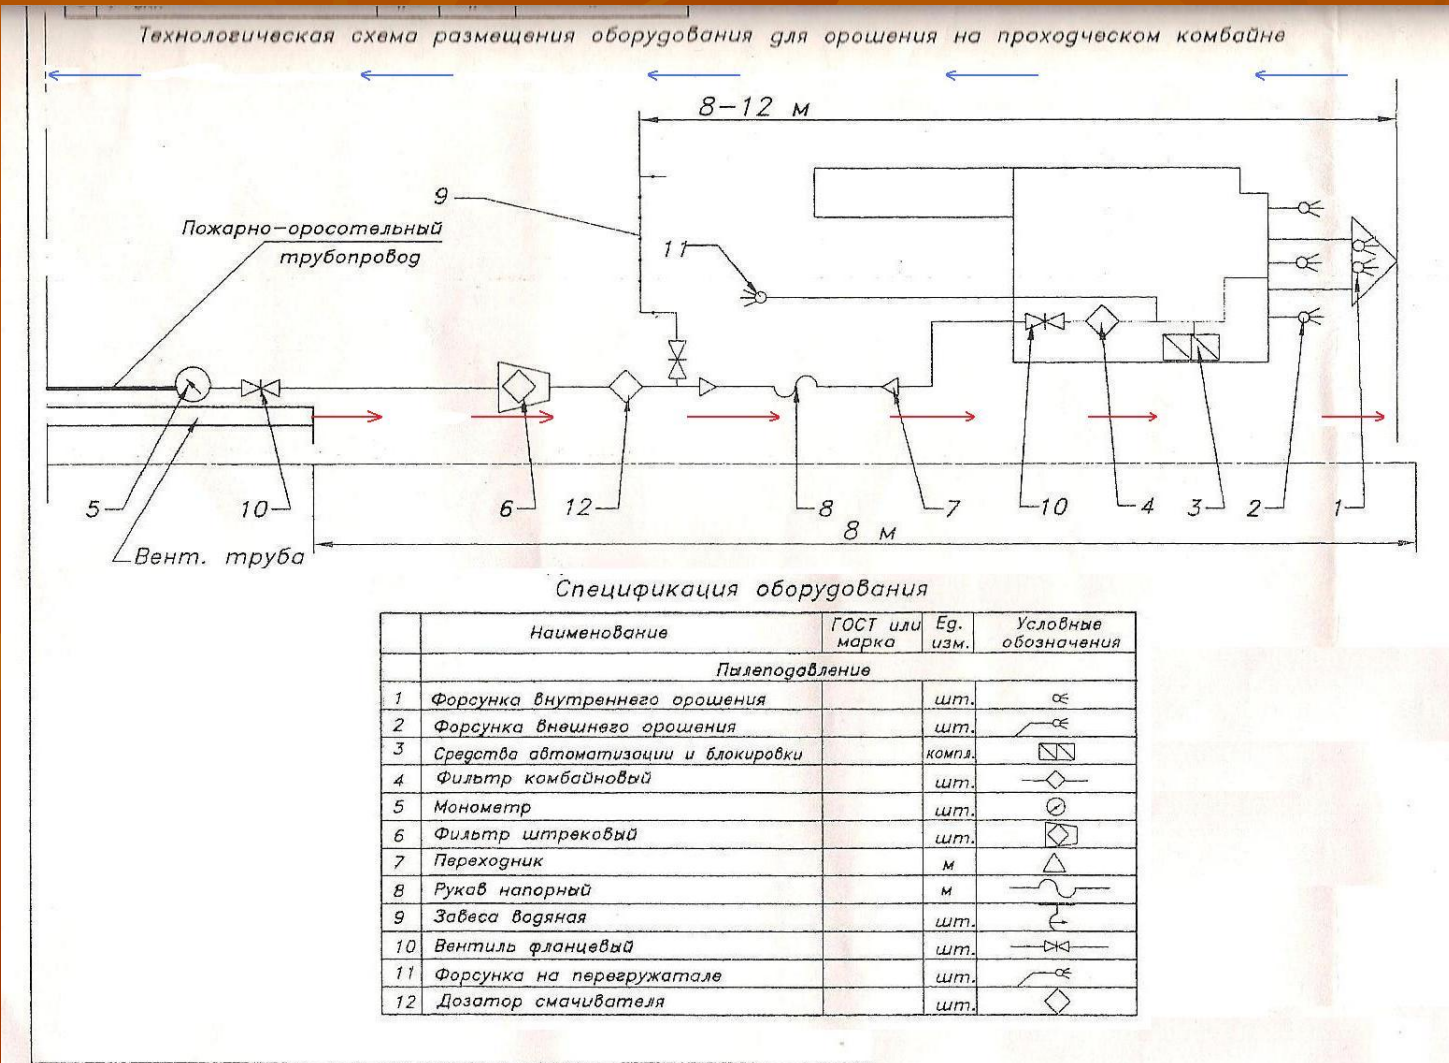 Технологическая схема размещения оборудования для орошения на проходческом комбайне
8-12 м
9
Пожарно-оросотельный
трубопровод
11
5
10
6
12
8
7
10
4
3
2
1
8 м
Вент. труба
Спецификация оборудования
Наименование ГОСТ или марка Ед. изм. Условные обозначения
Пылеподовление
1 Форсунка внутреннего орошения шт.
2 Форсунка внешнего орошения шт.
3 Средства автоматизации и блокировки компл.
4 Фильтр комбайновый шт.
5 Монометр шт.
6 Фильтр штрековый шт.
7 Переходник м
8 Рукав напорный м
9 Завеса водяная шт.
10 Вентиль фланцевый шт.
11 Форсунка на перегружатале шт.
12 Дозатор смачивателя шт.